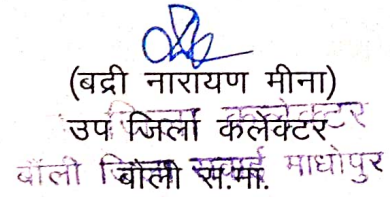 (बद्री नारायण मीना)
उप जिला कलेक्टर
बौंली स.मा.
जिला कलेक्टर
बौंली जिला सवाई माधोपुर